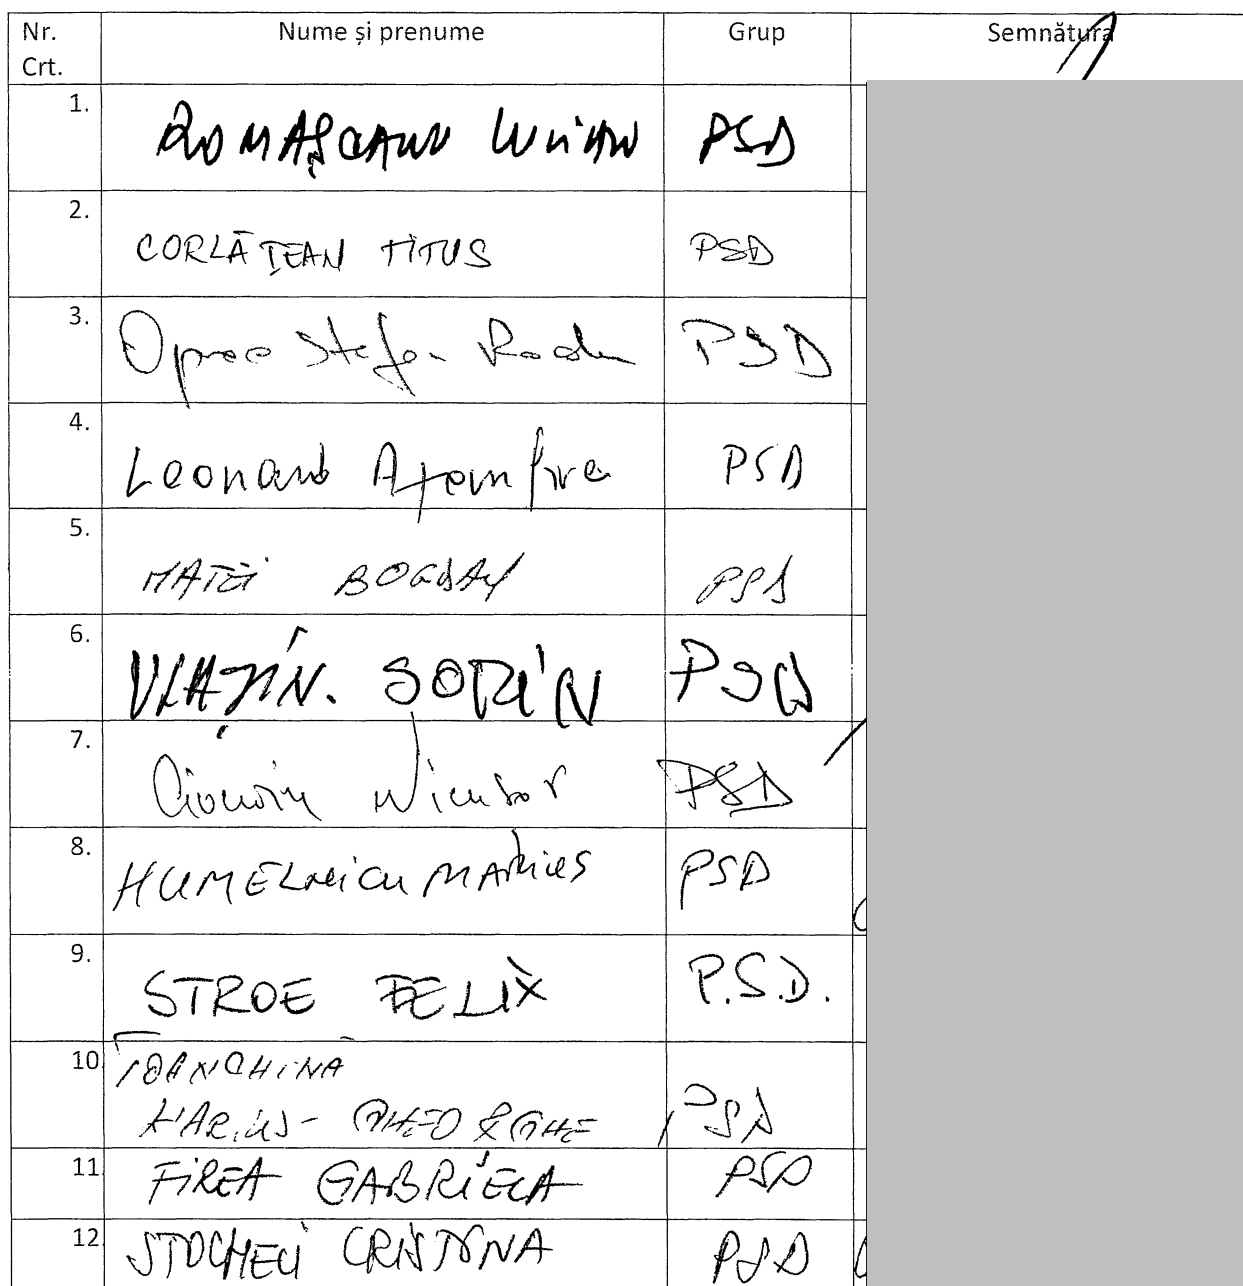 Nr. Crt. Nume și prenume Grup Semnătura
1. ROMAȘCANU LUCIAN PSD
2. CORLĂȚEAN TITUS PSD
3. Oprea Stefan Radu PSD
4. Leonard Azamfirei PSD
5. MATEI BOGDAN PSD
6. VLAȚIN. SORIN PSD
7. Cionoiu Nicusor PSD
8. HUMELNICU MARIUS PSD
9. STROE FELIX P.S.D.
10 TOANCHINĂ
MARIUS - GHEORGHE PSD
11 FIREA GABRIELA PSD
12 STOCHECI CRISTINA PSD